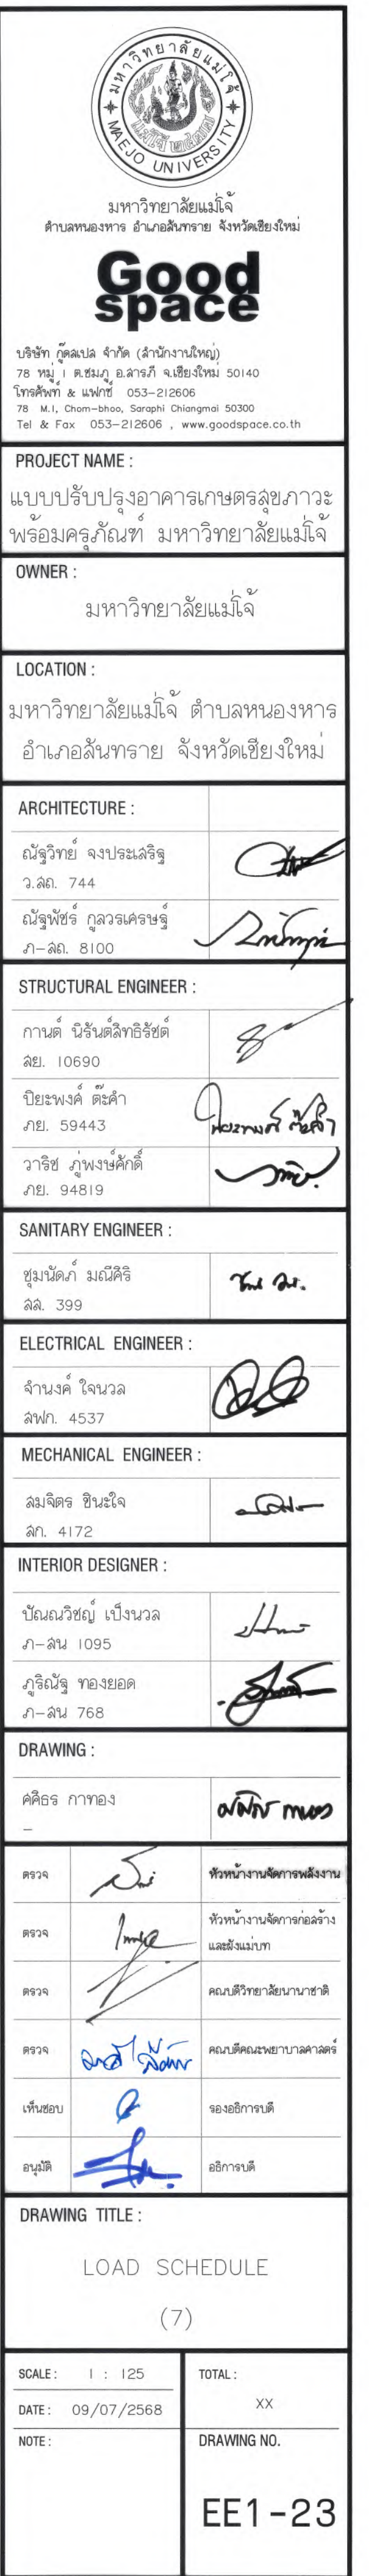 มหาวิทยาลัยแม่โจ้
MAEJO UNIVERSITY
มหาวิทยาลัยแม่โจ้
ตำบลหนองหาร อำเภอสันทราย จังหวัดเชียงใหม่
Good
space
บริษัท กู๊ดสเปส จำกัด (สำนักงานใหญ่)
78 หมู่ 1 ต.ชมภู อ.สารภี จ.เชียงใหม่ 50140
โทรศัพท์ & แฟกซ์ 053-212606
78 M.1, Chom-bhoo, Saraphi Chiangmai 50300
Tel & Fax 053-212606 , www.goodspace.co.th
PROJECT NAME :
แบบปรับปรุงอาคารเกษตรสุขภาวะ
พร้อมครุภัณฑ์ มหาวิทยาลัยแม่โจ้
OWNER :
มหาวิทยาลัยแม่โจ้
LOCATION :
มหาวิทยาลัยแม่โจ้ ตำบลหนองหาร
อำเภอสันทราย จังหวัดเชียงใหม่
ARCHITECTURE :
ณัฐวิทย์ จงประเสริฐ
ว.สถ. 744
ณัฐพัชร์ กุลวรเศรษฐ์
ภ-สถ. 8100
STRUCTURAL ENGINEER :
กานต์ นิรันต์สิทธิรัชต์
สย. 10690
ปิยะพงค์ ต๊ะคำ
ภย. 59443
วาริช ภู่พงษ์ศักดิ์
ภย. 94819
SANITARY ENGINEER :
ชุมนัดภ์ มณีศิริ
สส. 399
ELECTRICAL ENGINEER :
จำนงค์ ใจนวล
สฟก. 4537
MECHANICAL ENGINEER :
สมจิตร ชินะใจ
สก. 4172
INTERIOR DESIGNER :
ปัณณวิชญ์ เป็งนวล
ภ-สน 1095
ภูริณัฐ ทองยอด
ภ-สน 768
DRAWING :
ศศิธร กาทอง
–
ตรวจ หัวหน้างานจัดการพลังงาน
ตรวจ หัวหน้างานจัดการก่อสร้าง
และผังแม่บท
ตรวจ คณบดีวิทยาลัยนานาชาติ
ตรวจ คณบดีคณะพยาบาลศาสตร์
เห็นชอบ รองอธิการบดี
อนุมัติ อธิการบดี
DRAWING TITLE :
LOAD SCHEDULE
(7)
SCALE : 1 : 125
TOTAL :
XX
DATE : 09/07/2568
NOTE :
DRAWING NO.
EE1-23